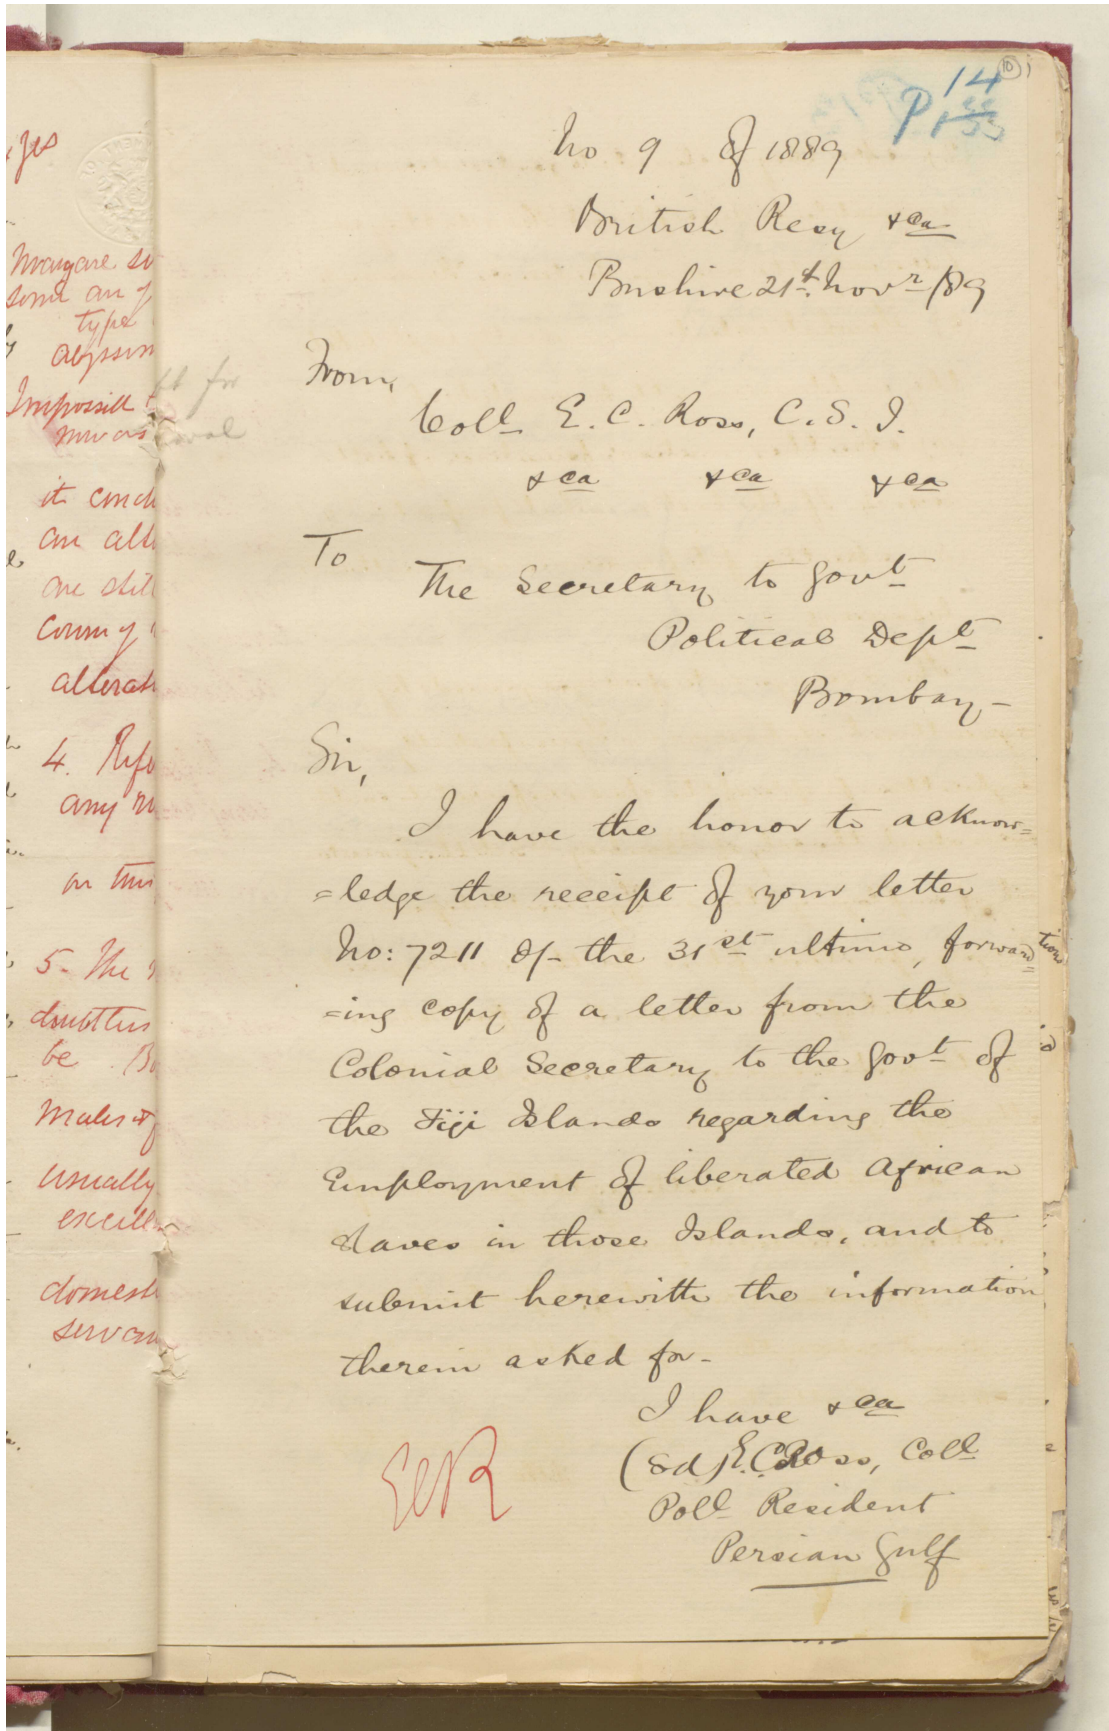 10
P 14
No 9 of 1889
British Resy &ca
Bushire 21st Novr /89
From,
Coll E. C. Ross, C. S. I.
&ca &ca &ca
To
The Secretary to Govt
Political Dept
Bombay -
Sir,
I have the honor to acknow=
=ledge the receipt of your letter
No: 7211 of the 31st ultimo, forward=
=ing copy of a letter from the
Colonial Secretary to the Govt of
the Fiji Islands regarding the
Employment of liberated African
slaves in those Islands, and to
submit herewith the information
therein asked for -
I have &ca
(Sd) E. C. Ross, Coll
Poll Resident
Persian Gulf
ECR
some an
type
abyssin
Impossill
it
an alte
are still
alterat
4. Refe
any
on this
5- The
doubtless
be
Males &
usually
excelle
domest
servan